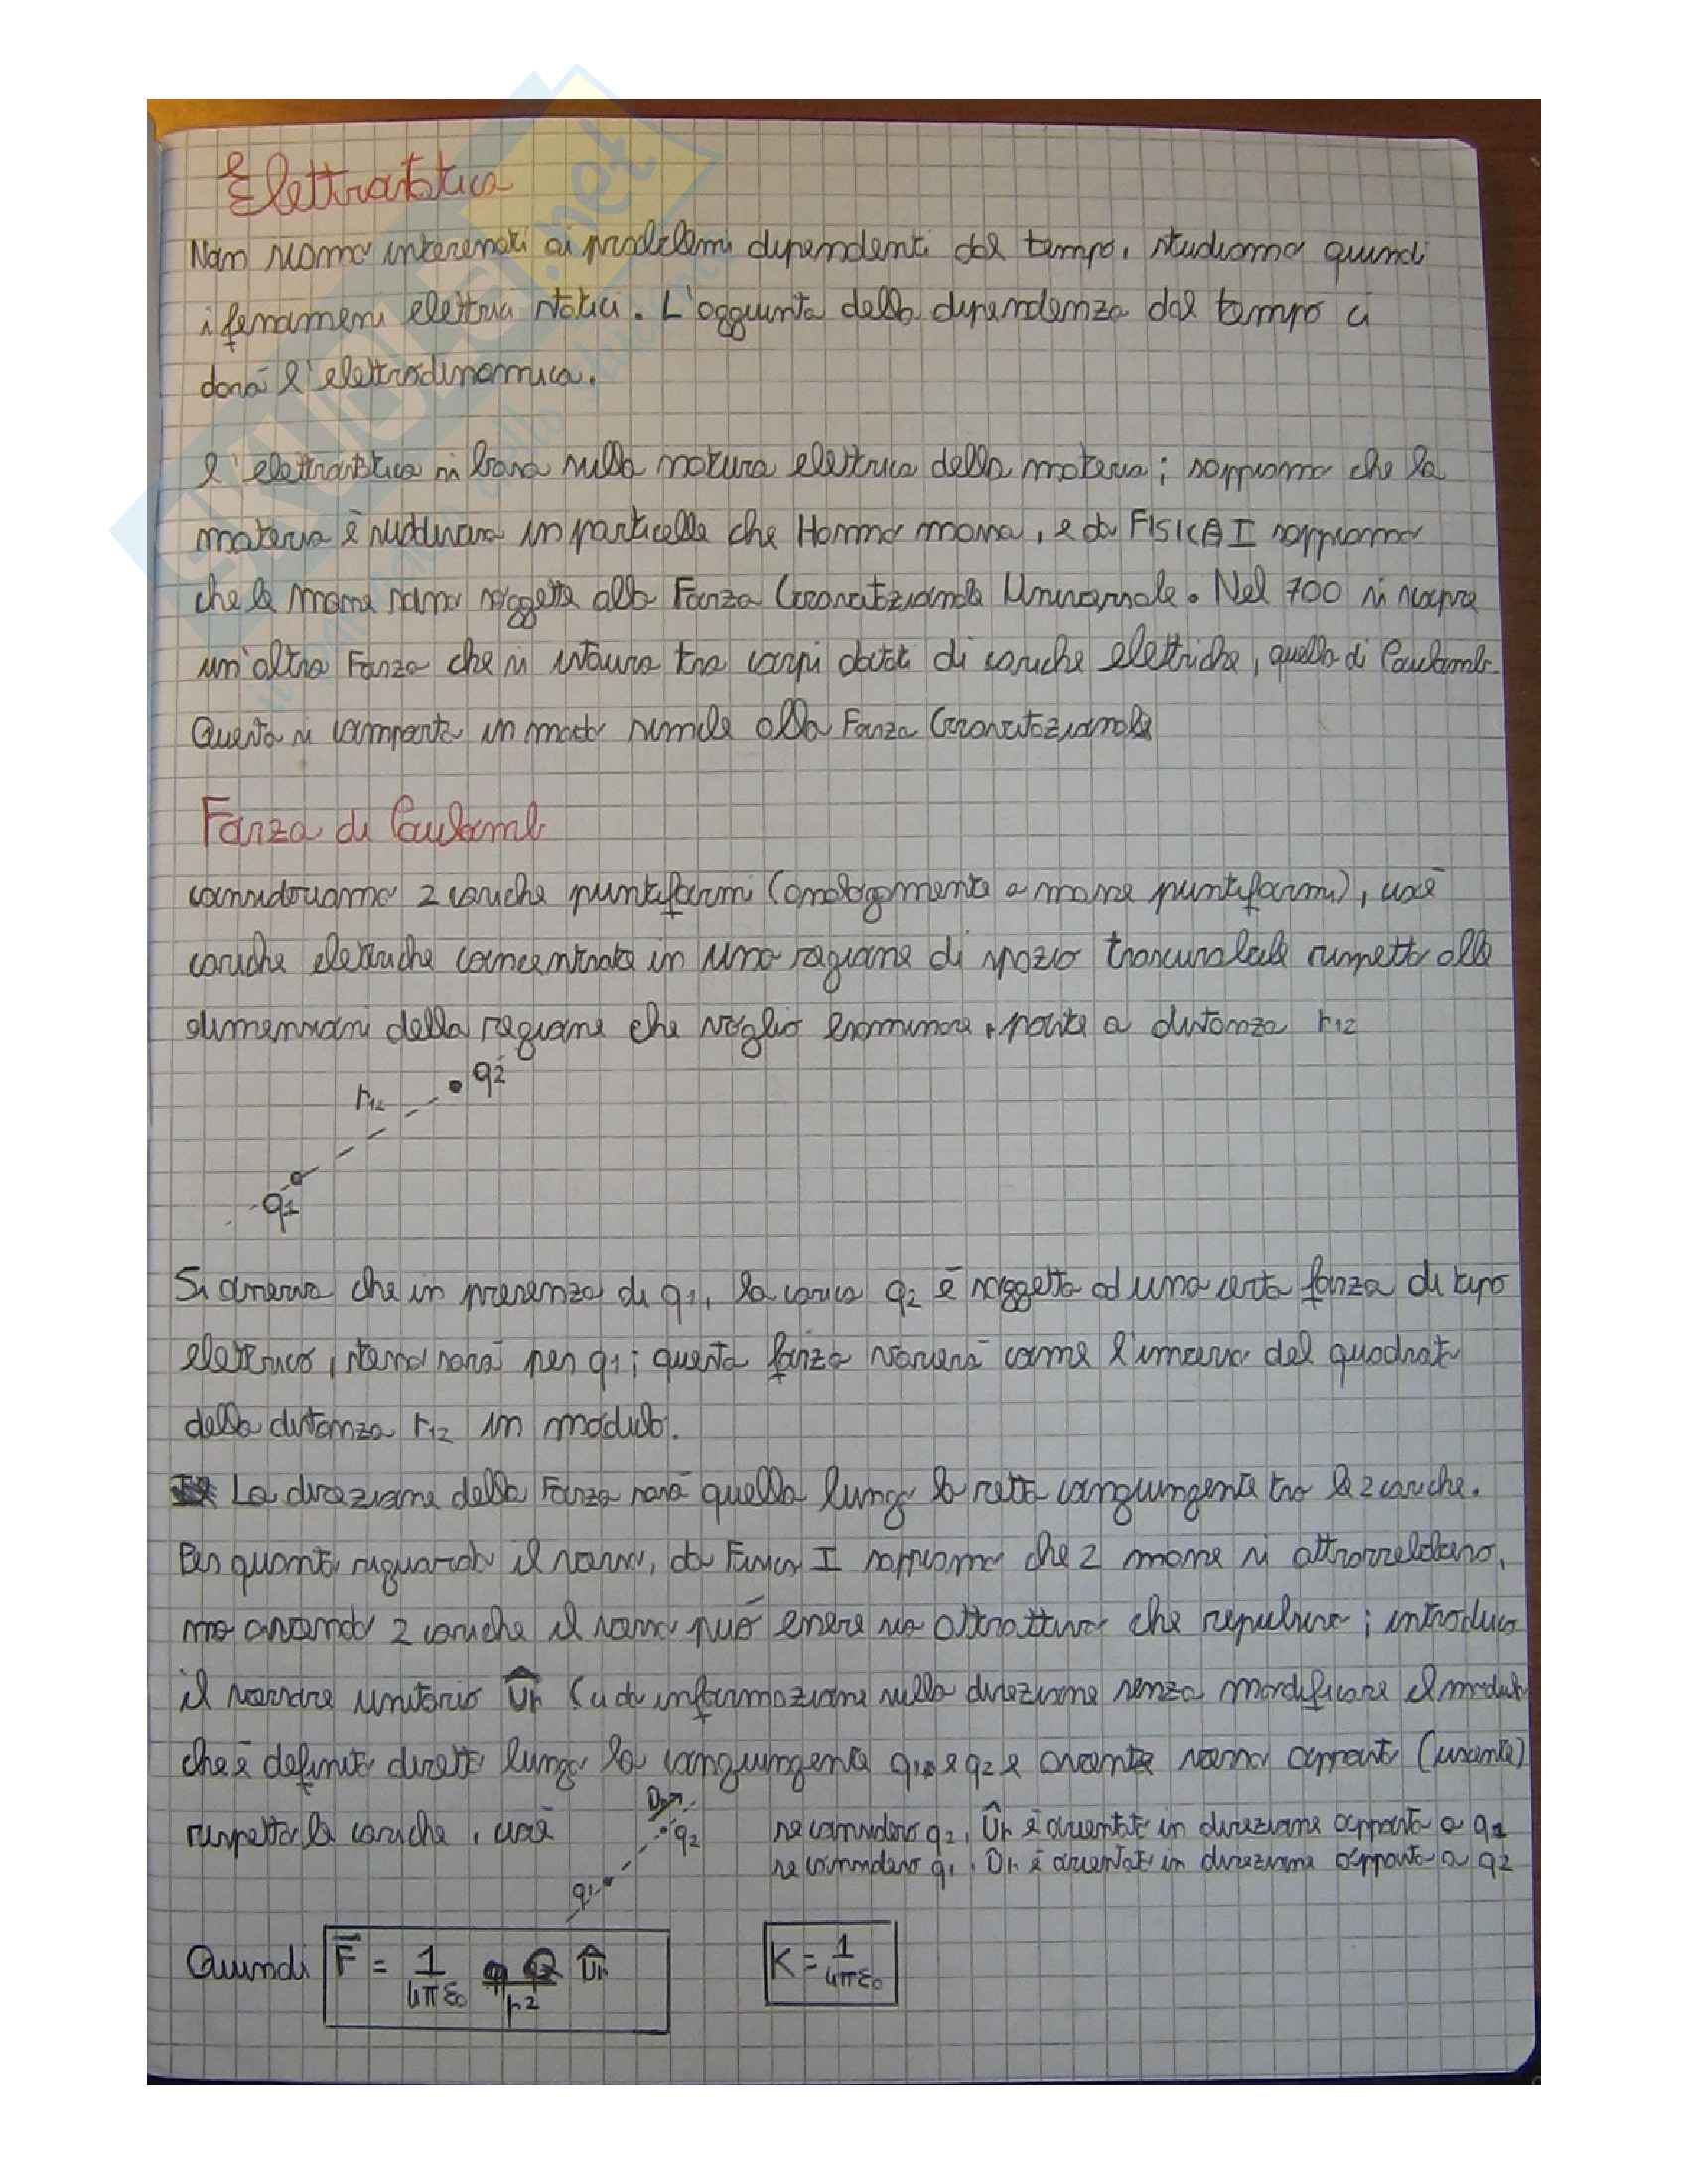 Elettrostatica
Non siamo interessati ai problemi dipendenti dal tempo, studiamo quindi
i fenomeni elettrici statici. L'aggiunta della dipendenza dal tempo ci
darà l'elettrodinamica.
L'elettrostatica si basa sulla natura elettrica della materia; sappiamo che la
materia è suddivisa in particelle che Hanno massa, e da FISICA I sappiamo
che le masse sono soggette alla Forza Gravitazionale Universale. Nel 700 si scopre
un'altra Forza che si instaura tra corpi dotati di cariche elettriche, quella di Coulomb.
Questa si comporta in modo simile alla Forza Gravitazionale
Forza di Coulomb
consideriamo 2 cariche puntiformi (analogamente a masse puntiformi), cioè
cariche elettriche concentrate in una regione di spazio trascurabile rispetto alle
dimensioni della regione che voglio esaminare, poste a distanza r12
r12
q2
q1
Si osserva che in presenza di q1, la carica q2 è soggetta ad una certa forza di tipo
elettrico, stessa sarà per q1; questa forza varierà come l'inverso del quadrato
della distanza r12 in modulo.
La direzione della Forza sarà quella lungo la retta congiungente tra le 2 cariche.
Per quanto riguarda il verso, da Fisica I sappiamo che 2 masse si attrarrebbero,
ma avendo 2 cariche il verso può essere sia attrattivo che repulsivo; introduco
il versore unitario Ûr (ci da informazione sulla direzione senza modificare il modulo
che è definito diretto lungo la congiungente q1 e q2 e avente verso opposto (uscente)
rispetto la carica, cioè
Ûr
q2
q1
se considero q2, Ûr è orientato in direzione opposta a q1
se considero q1, Ûr è orientato in direzione opposta a q2
Quindi F̅ = 1/4πε0 q Q/r² Ûr
K = 1/4πε0